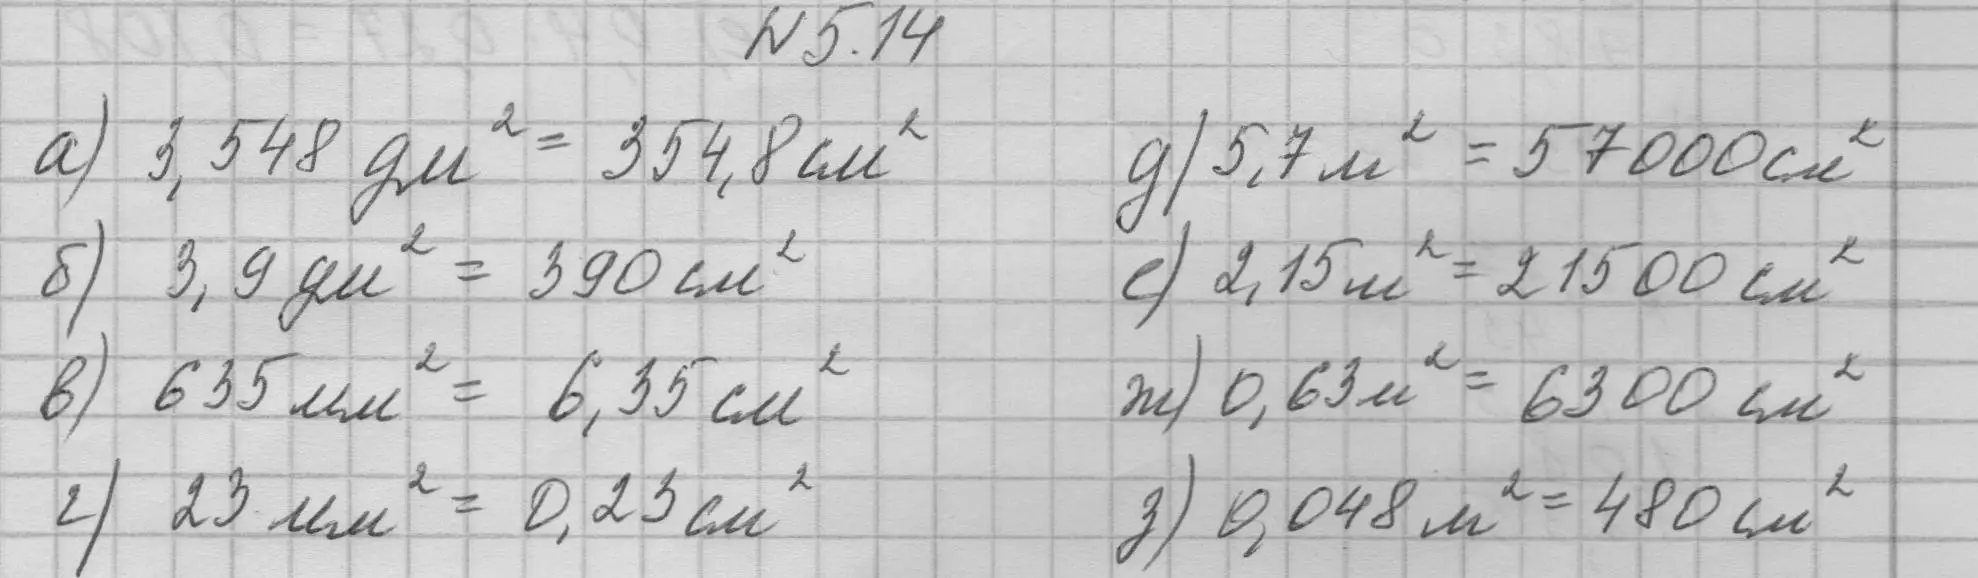 N 5.14
а) 3,548 дм² = 354,8 см²
б) 3,9 дм² = 390 см²
в) 635 мм² = 6,35 см²
г) 23 мм² = 0,23 см²
д) 5,7 м² = 57000 см²
е) 2,15 м² = 21500 см²
ж) 0,63 м² = 6300 см²
з) 0,048 м² = 480 см²